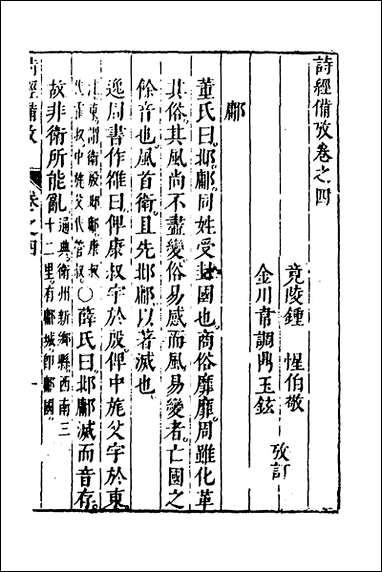 詩經備攷卷之四
竟陵鍾惺伯敬
金川韋調鼎玉鉉
攷訂
鄘
董氏曰邶鄘同姓受封國也商俗靡靡周雖化革
其俗其風尚不盡變俗易感而風易變者亡國之
餘音也風首衛且先邶鄘以著滅也
逸周書作雒曰俾康叔宇於殷俾中旄父宇於東
代霍叔中旄父代管叔○薛氏曰邶鄘滅而音存
故非衛所能亂通典衛州新鄉縣西南三
十二里有鄘城卽鄘國
詩經備攷
卷之四
一